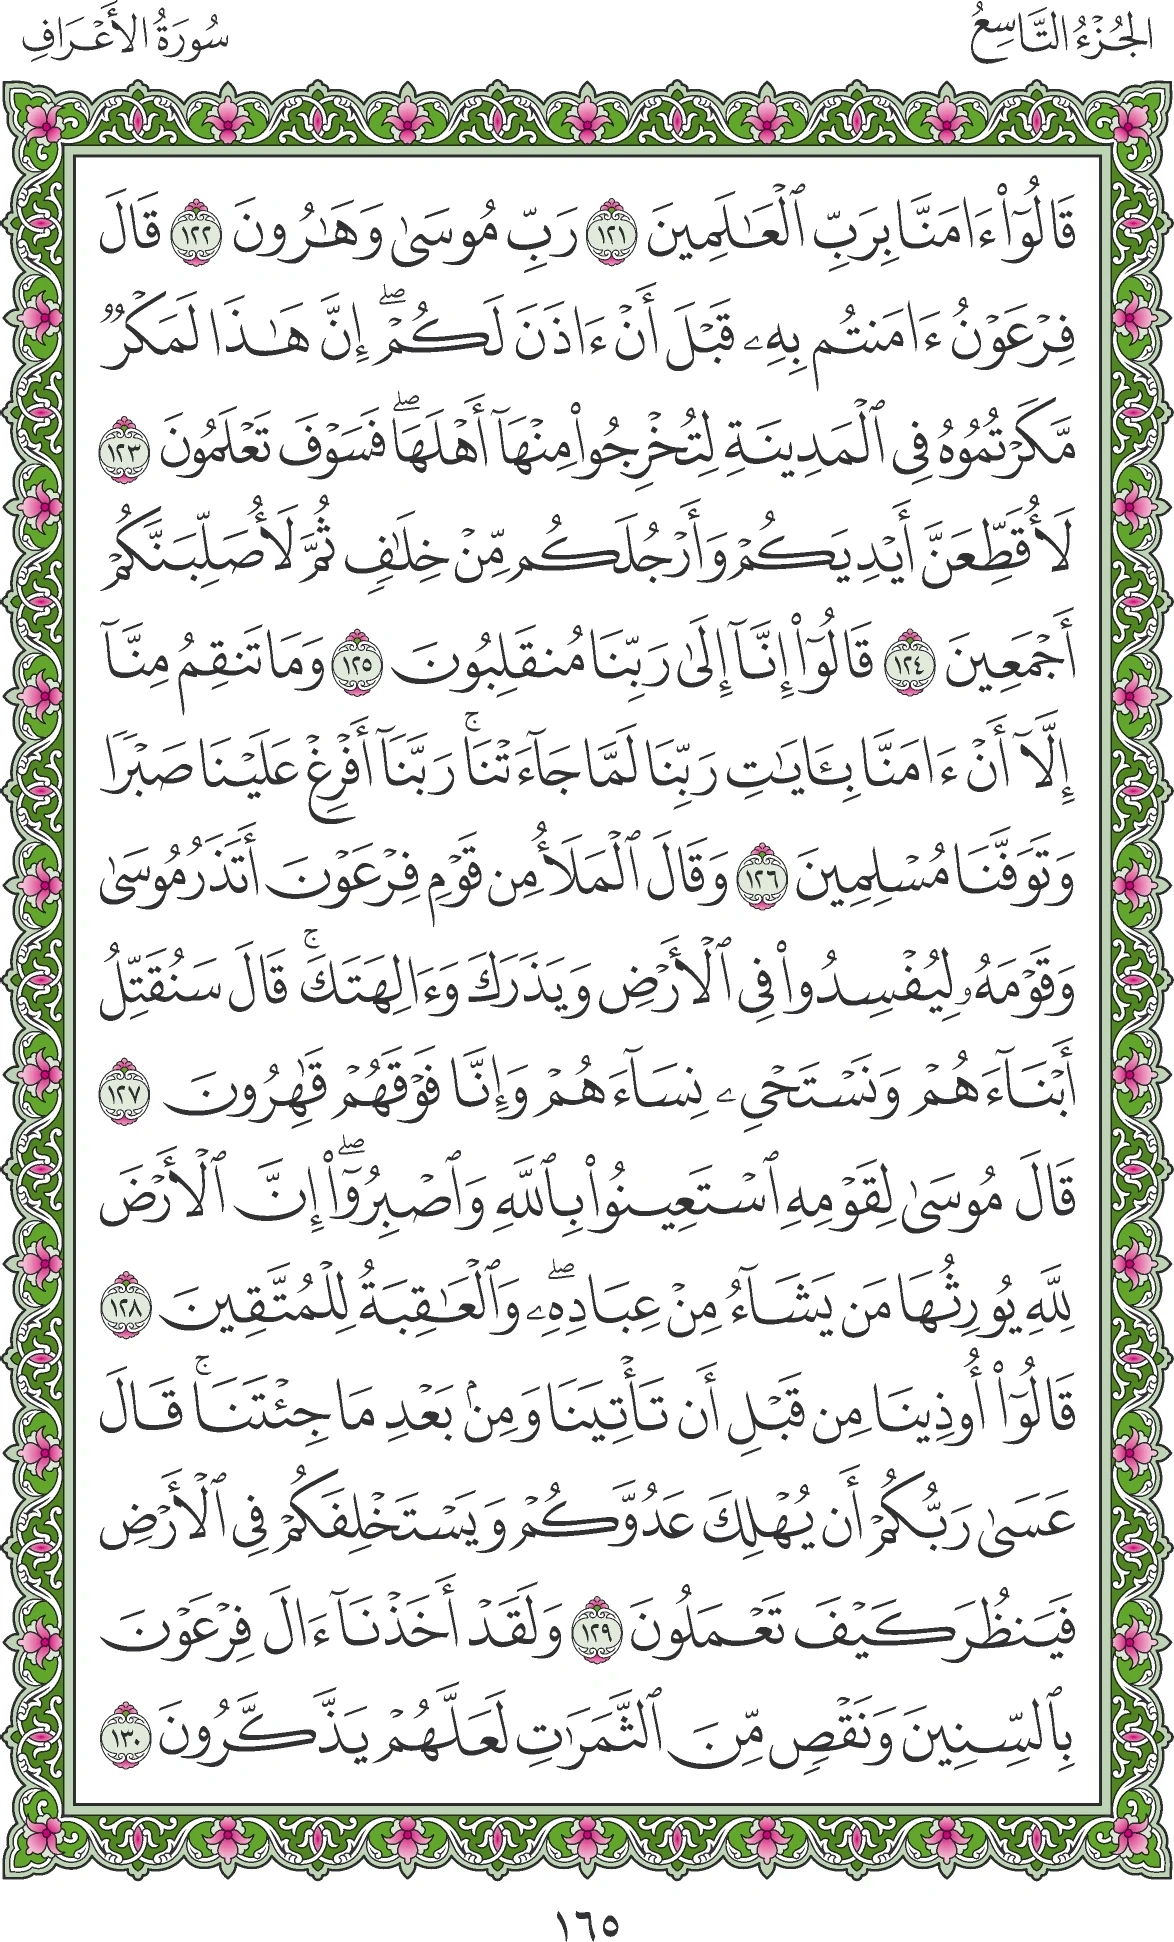 الجُزْءُ التَّاسِعُ
سُورَةُ الأَعْرَافِ
قَالُوٓاْ ءَامَنَّا بِرَبِّ ٱلْعَٰلَمِينَ ١٢١ رَبِّ مُوسَىٰ وَهَٰرُونَ ١٢٢ قَالَ
فِرْعَوْنُ ءَامَنتُم بِهِۦ قَبْلَ أَنْ ءَاذَنَ لَكُمْۖ إِنَّ هَٰذَا لَمَكْرٌ
مَّكَرْتُمُوهُ فِي ٱلْمَدِينَةِ لِتُخْرِجُواْ مِنْهَآ أَهْلَهَاۖ فَسَوْفَ تَعْلَمُونَ ١٢٣
لَأُقَطِّعَنَّ أَيْدِيَكُمْ وَأَرْجُلَكُم مِّنْ خِلَٰفٍ ثُمَّ لَأُصَلِّبَنَّكُمْ
أَجْمَعِينَ ١٢٤ قَالُوٓاْ إِنَّآ إِلَىٰ رَبِّنَا مُنقَلِبُونَ ١٢٥ وَمَا تَنقِمُ مِنَّآ
إِلَّآ أَنْ ءَامَنَّا بِـَٔايَٰتِ رَبِّنَا لَمَّا جَآءَتْنَاۚ رَبَّنَآ أَفْرِغْ عَلَيْنَا صَبْرًا
وَتَوَفَّنَا مُسْلِمِينَ ١٢٦ وَقَالَ ٱلْمَلَأُ مِن قَوْمِ فِرْعَوْنَ أَتَذَرُ مُوسَىٰ
وَقَوْمَهُۥ لِيُفْسِدُواْ فِي ٱلْأَرْضِ وَيَذَرَكَ وَءَالِهَتَكَۚ قَالَ سَنُقَتِّلُ
أَبْنَآءَهُمْ وَنَسْتَحْيِۦ نِسَآءَهُمْ وَإِنَّا فَوْقَهُمْ قَٰهِرُونَ ١٢٧
قَالَ مُوسَىٰ لِقَوْمِهِ ٱسْتَعِينُواْ بِٱللَّهِ وَٱصْبِرُوٓاْۖ إِنَّ ٱلْأَرْضَ
لِلَّهِ يُورِثُهَا مَن يَشَآءُ مِنْ عِبَادِهِۦۖ وَٱلْعَٰقِبَةُ لِلْمُتَّقِينَ ١٢٨
قَالُوٓاْ أُوذِينَا مِن قَبْلِ أَن تَأْتِيَنَا وَمِنۢ بَعْدِ مَا جِئْتَنَاۚ قَالَ
عَسَىٰ رَبُّكُمْ أَن يُهْلِكَ عَدُوَّكُمْ وَيَسْتَخْلِفَكُمْ فِي ٱلْأَرْضِ
فَيَنظُرَ كَيْفَ تَعْمَلُونَ ١٢٩ وَلَقَدْ أَخَذْنَآ ءَالَ فِرْعَوْنَ
بِٱلسِّنِينَ وَنَقْصٍ مِّنَ ٱلثَّمَرَٰتِ لَعَلَّهُمْ يَذَّكَّرُونَ ١٣٠
١٦٥